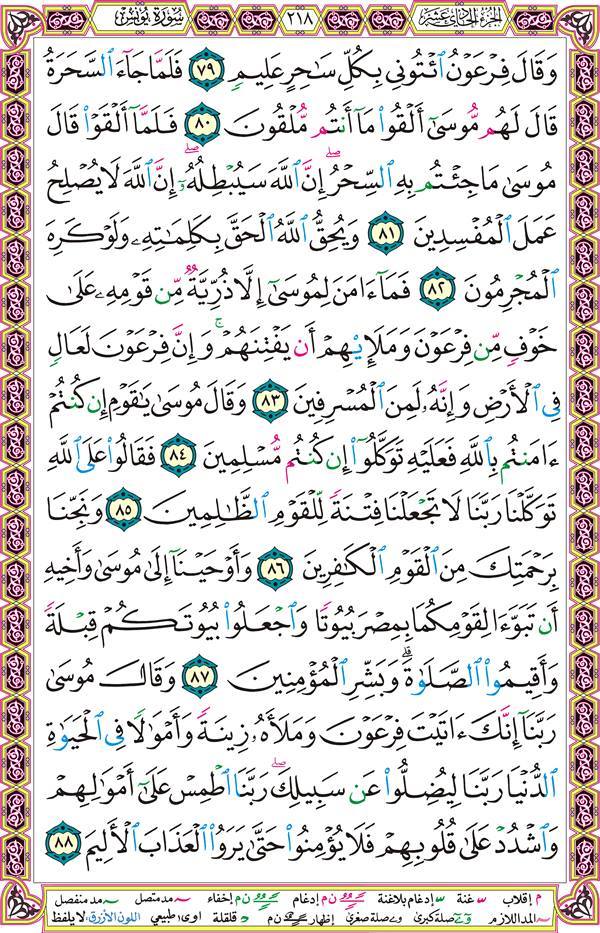 سُورَةُ يُونُس
٢١٨
الجزء الحادي عشر
وَقَالَ فِرْعَوْنُ ٱئْتُونِى بِكُلِّ سَٰحِرٍ عَلِيمٍ ٧٩ فَلَمَّا جَآءَ ٱلسَّحَرَةُ
قَالَ لَهُم مُّوسَىٰٓ أَلْقُوا۟ مَآ أَنتُم مُّلْقُونَ ٨٠ فَلَمَّآ أَلْقَوْا۟ قَالَ
مُوسَىٰ مَا جِئْتُم بِهِ ٱلسِّحْرُ ۖ إِنَّ ٱللَّهَ سَيُبْطِلُهُۥٓ ۖ إِنَّ ٱللَّهَ لَا يُصْلِحُ
عَمَلَ ٱلْمُفْسِدِينَ ٨١ وَيُحِقُّ ٱللَّهُ ٱلْحَقَّ بِكَلِمَٰتِهِۦ وَلَوْ كَرِهَ
ٱلْمُجْرِمُونَ ٨٢ فَمَآ ءَامَنَ لِمُوسَىٰٓ إِلَّا ذُرِّيَّةٌ مِّن قَوْمِهِۦ عَلَىٰ
خَوْفٍ مِّن فِرْعَوْنَ وَمَلَإِي۟هِمْ أَن يَفْتِنَهُمْ ۚ وَإِنَّ فِرْعَوْنَ لَعَالٍ
فِى ٱلْأَرْضِ وَإِنَّهُۥ لَمِنَ ٱلْمُسْرِفِينَ ٨٣ وَقَالَ مُوسَىٰ يَٰقَوْمِ إِن كُنتُمْ
ءَامَنتُم بِٱللَّهِ فَعَلَيْهِ تَوَكَّلُوٓا۟ إِن كُنتُم مُّسْلِمِينَ ٨٤ فَقَالُوا۟ عَلَى ٱللَّهِ
تَوَكَّلْنَا رَبَّنَا لَا تَجْعَلْنَا فِتْنَةً لِّلْقَوْمِ ٱلظَّٰلِمِينَ ٨٥ وَنَجِّنَا
بِرَحْمَتِكَ مِنَ ٱلْقَوْمِ ٱلْكَٰفِرِينَ ٨٦ وَأَوْحَيْنَآ إِلَىٰ مُوسَىٰ وَأَخِيهِ
أَن تَبَوَّءَا لِقَوْمِكُمَا بِمِصْرَ بُيُوتًا وَٱجْعَلُوا۟ بُيُوتَكُمْ قِبْلَةً
وَأَقِيمُوا۟ ٱلصَّلَوٰةَ ۗ وَبَشِّرِ ٱلْمُؤْمِنِينَ ٨٧ وَقَالَ مُوسَىٰ
رَبَّنَآ إِنَّكَ ءَاتَيْتَ فِرْعَوْنَ وَمَلَأَهُۥ زِينَةً وَأَمْوَٰلًا فِى ٱلْحَيَوٰةِ
ٱلدُّنْيَا رَبَّنَا لِيُضِلُّوا۟ عَن سَبِيلِكَ ۖ رَبَّنَا ٱطْمِسْ عَلَىٰٓ أَمْوَٰلِهِمْ
وَٱشْدُدْ عَلَىٰ قُلُوبِهِمْ فَلَا يُؤْمِنُوا۟ حَتَّىٰ يَرَوُا۟ ٱلْعَذَابَ ٱلْأَلِيمَ ٨٨
م إقلاب غنة إدغام بلاغنة ن م إدغام ن م إخفاء مد متصل مد منفصل
المد اللازم صلة كبرى صلة صغرى إظهار ن م قلقلة اوى طبيعي اللون الأزرق لا يلفظ